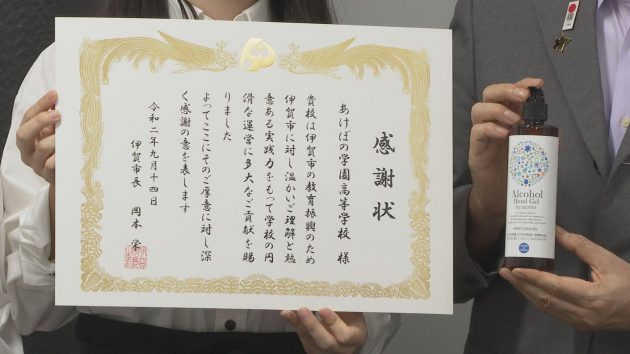 感謝状
あけぼの学園高等学校 様
貴校は伊賀市の教育振興のため
伊賀市に対し温かいご理解と熱
意ある実践力をもって学校の円
滑な運営に多大なご貢献を賜
りました
よってここにそのご厚意に対し深
く感謝の意を表します
令和二年九月十四日
伊賀市長 岡本 栄
Alcohol
Hand Gel
HAND CLEAN GEL